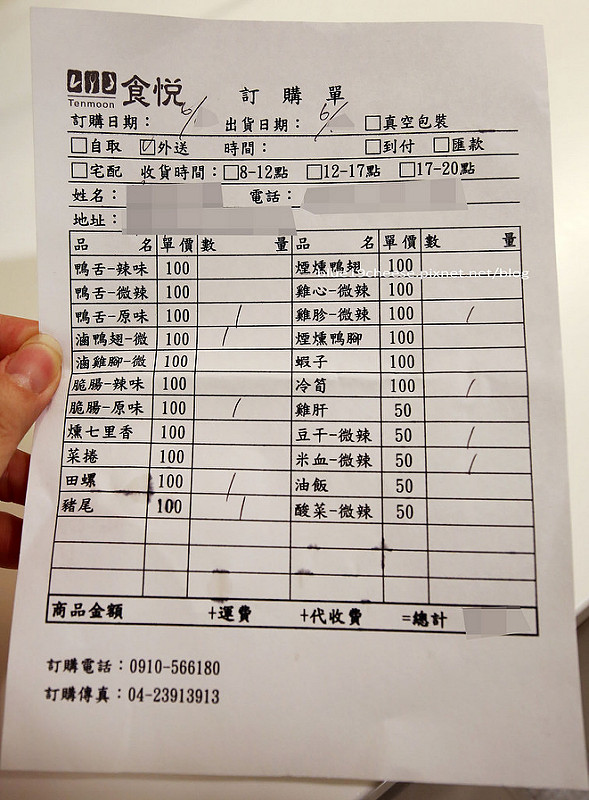 食悦
Tenmoon
訂購單
訂購日期：6/ 出貨日期：6/ □真空包裝
□自取 ☑外送 時間： □到付 □匯款
□宅配 收貨時間：□8-12點 □12-17點 □17-20點
姓名： 電話：
地址：
品名 單價 數量 品名 單價 數量
鴨舌-辣味 100 煙燻鴨翅 100
鴨舌-微辣 100 雞心-微辣 100
鴨舌-原味 100 / 雞胗-微辣 100 /
滷鴨翅-微 100 / 煙燻鴨腳 100
滷雞腳-微 100 蝦子 100
脆腸-辣味 100 冷筍 100 /
脆腸-原味 100 / 雞肝 50
燻七里香 100 豆干-微辣 50 /
菜捲 100 米血-微辣 50 /
田螺 100 / 油飯 50
豬尾 100 / 酸菜-微辣 50
商品金額 +運費 +代收費 =總計
訂購電話：0910-566180
訂購傳真：04-23913913